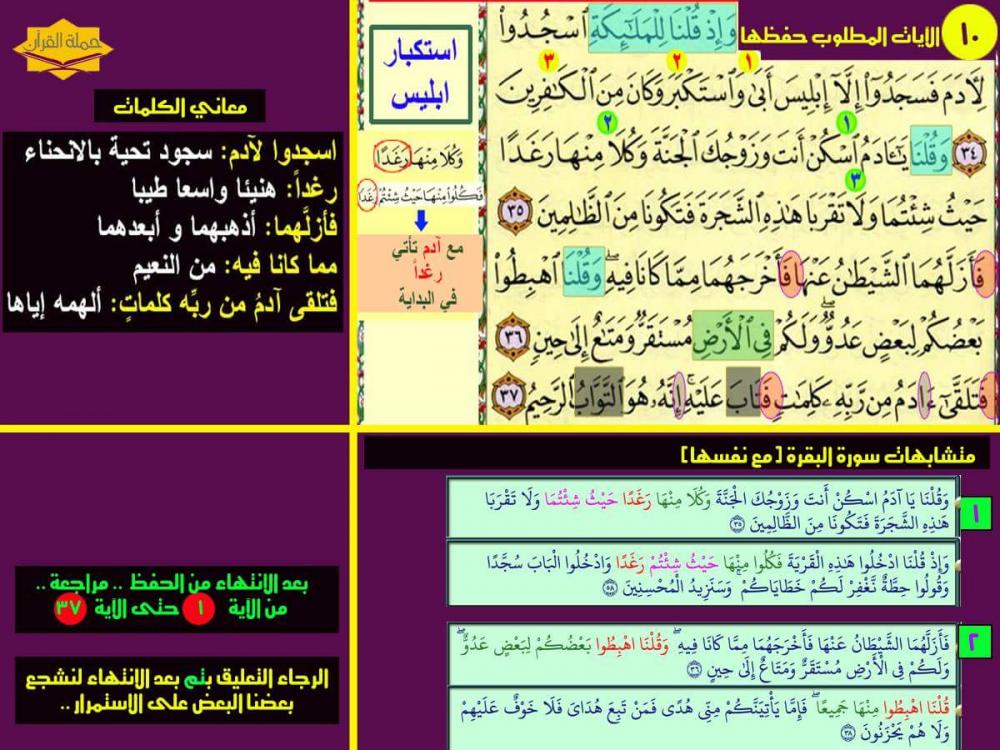 ١٠
الآيات المطلوب حفظها
وَإِذْ قُلْنَا لِلْمَلَٰٓئِكَةِ ٱسْجُدُوا۟
لِـَٔادَمَ فَسَجَدُوٓا۟ إِلَّآ إِبْلِيسَ أَبَىٰ وَٱسْتَكْبَرَ وَكَانَ مِنَ ٱلْكَٰفِرِينَ
١ ٢ ٣
٣٤ وَقُلْنَا يَٰٓـَٔادَمُ ٱسْكُنْ أَنتَ وَزَوْجُكَ ٱلْجَنَّةَ وَكُلَا مِنْهَا رَغَدًا
١ ٢
حَيْثُ شِئْتُمَا وَلَا تَقْرَبَا هَٰذِهِ ٱلشَّجَرَةَ فَتَكُونَا مِنَ ٱلظَّٰلِمِينَ ٣٥
٣
فَأَزَلَّهُمَا ٱلشَّيْطَٰنُ عَنْهَا فَأَخْرَجَهُمَا مِمَّا كَانَا فِيهِ ۖ وَقُلْنَا ٱهْبِطُوا۟
بَعْضُكُمْ لِبَعْضٍ عَدُوٌّ ۖ وَلَكُمْ فِى ٱلْأَرْضِ مُسْتَقَرٌّ وَمَتَٰعٌ إِلَىٰ حِينٍ ٣٦
فَتَلَقَّىٰٓ ءَادَمُ مِن رَّبِّهِۦ كَلِمَٰتٍ فَتَابَ عَلَيْهِ ۚ إِنَّهُۥ هُوَ ٱلتَّوَّابُ ٱلرَّحِيمُ ٣٧
استكبار
ابليس
وَكُلَا مِنْهَا رَغَدًا
فَكُلُوا مِنْهَا حَيْثُ شِئْتُمْ رَغَدًا
مع آدم تأتي
رغداً
في البداية
حملة القرآن
معاني الكلمات
اسجدوا لآدم: سجود تحية بالانحناء
رغداً: هنيئا واسعا طيبا
فأزلَّهما: أذهبهما و أبعدهما
مما كانا فيه: من النعيم
فتلقى آدمُ من ربِّه كلماتٍ: ألهمه إياها
متشابهات سورة البقرة [مع نفسها]
١
وَقُلْنَا يَا آدَمُ اسْكُنْ أَنتَ وَزَوْجُكَ الْجَنَّةَ وَكُلَا مِنْهَا رَغَدًا حَيْثُ شِئْتُمَا وَلَا تَقْرَبَا
هَٰذِهِ الشَّجَرَةَ فَتَكُونَا مِنَ الظَّالِمِينَ ٣٥
وَإِذْ قُلْنَا ادْخُلُوا هَٰذِهِ الْقَرْيَةَ فَكُلُوا مِنْهَا حَيْثُ شِئْتُمْ رَغَدًا وَادْخُلُوا الْبَابَ سُجَّدًا
وَقُولُوا حِطَّةٌ نَّغْفِرْ لَكُمْ خَطَايَاكُمْ ۚ وَسَنَزِيدُ الْمُحْسِنِينَ ٥٨
٢
فَأَزَلَّهُمَا الشَّيْطَانُ عَنْهَا فَأَخْرَجَهُمَا مِمَّا كَانَا فِيهِ ۖ وَقُلْنَا اهْبِطُوا بَعْضُكُمْ لِبَعْضٍ عَدُوٌّ ۖ
وَلَكُمْ فِي الْأَرْضِ مُسْتَقَرٌّ وَمَتَاعٌ إِلَىٰ حِينٍ ٣٦
قُلْنَا اهْبِطُوا مِنْهَا جَمِيعًا ۖ فَإِمَّا يَأْتِيَنَّكُم مِّنِّي هُدًى فَمَن تَبِعَ هُدَايَ فَلَا خَوْفٌ عَلَيْهِمْ
وَلَا هُمْ يَحْزَنُونَ ٣٨
بعد الانتهاء من الحفظ .. مراجعة ..
من الآية ١ حتى الآية ٣٧
الرجاء التعليق بتم بعد الانتهاء لنشجع
بعضنا البعض على الاستمرار ..